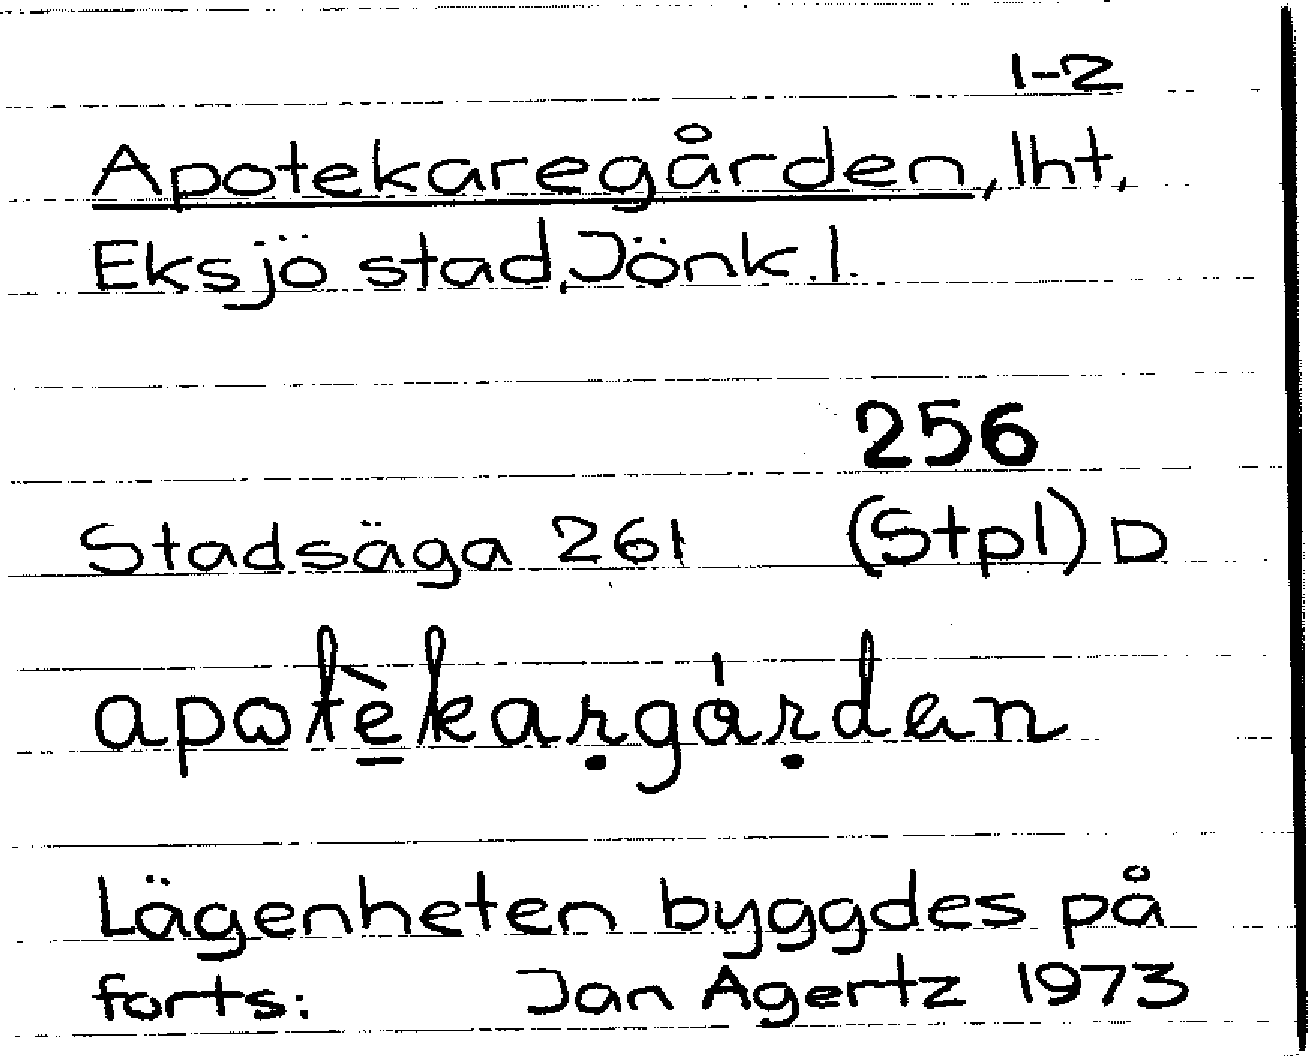 1-2
Apotekaregården, lht,
Eksjö stad, Jönk. l.
256
Stadsäga 261 (Stpl) D
apotèkargårdan
Lägenheten byggdes på
forts: Jan Agertz 1973